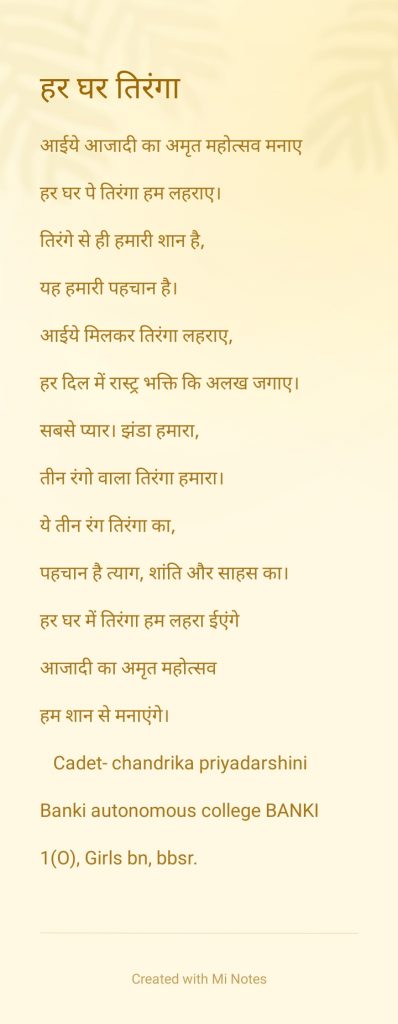 हर घर तिरंगा
आईये आजादी का अमृत महोत्सव मनाए
हर घर पे तिरंगा हम लहराए।
तिरंगे से ही हमारी शान है,
यह हमारी पहचान है।
आईये मिलकर तिरंगा लहराए,
हर दिल में रास्ट्र भक्ति कि अलख जगाए।
सबसे प्यार। झंडा हमारा,
तीन रंगो वाला तिरंगा हमारा।
ये तीन रंग तिरंगा का,
पहचान है त्याग, शांति और साहस का।
हर घर में तिरंगा हम लहरा ईएंगे
आजादी का अमृत महोत्सव
हम शान से मनाएंगे।
Cadet- chandrika priyadarshini
Banki autonomous college BANKI
1(O), Girls bn, bbsr.
Created with Mi Notes